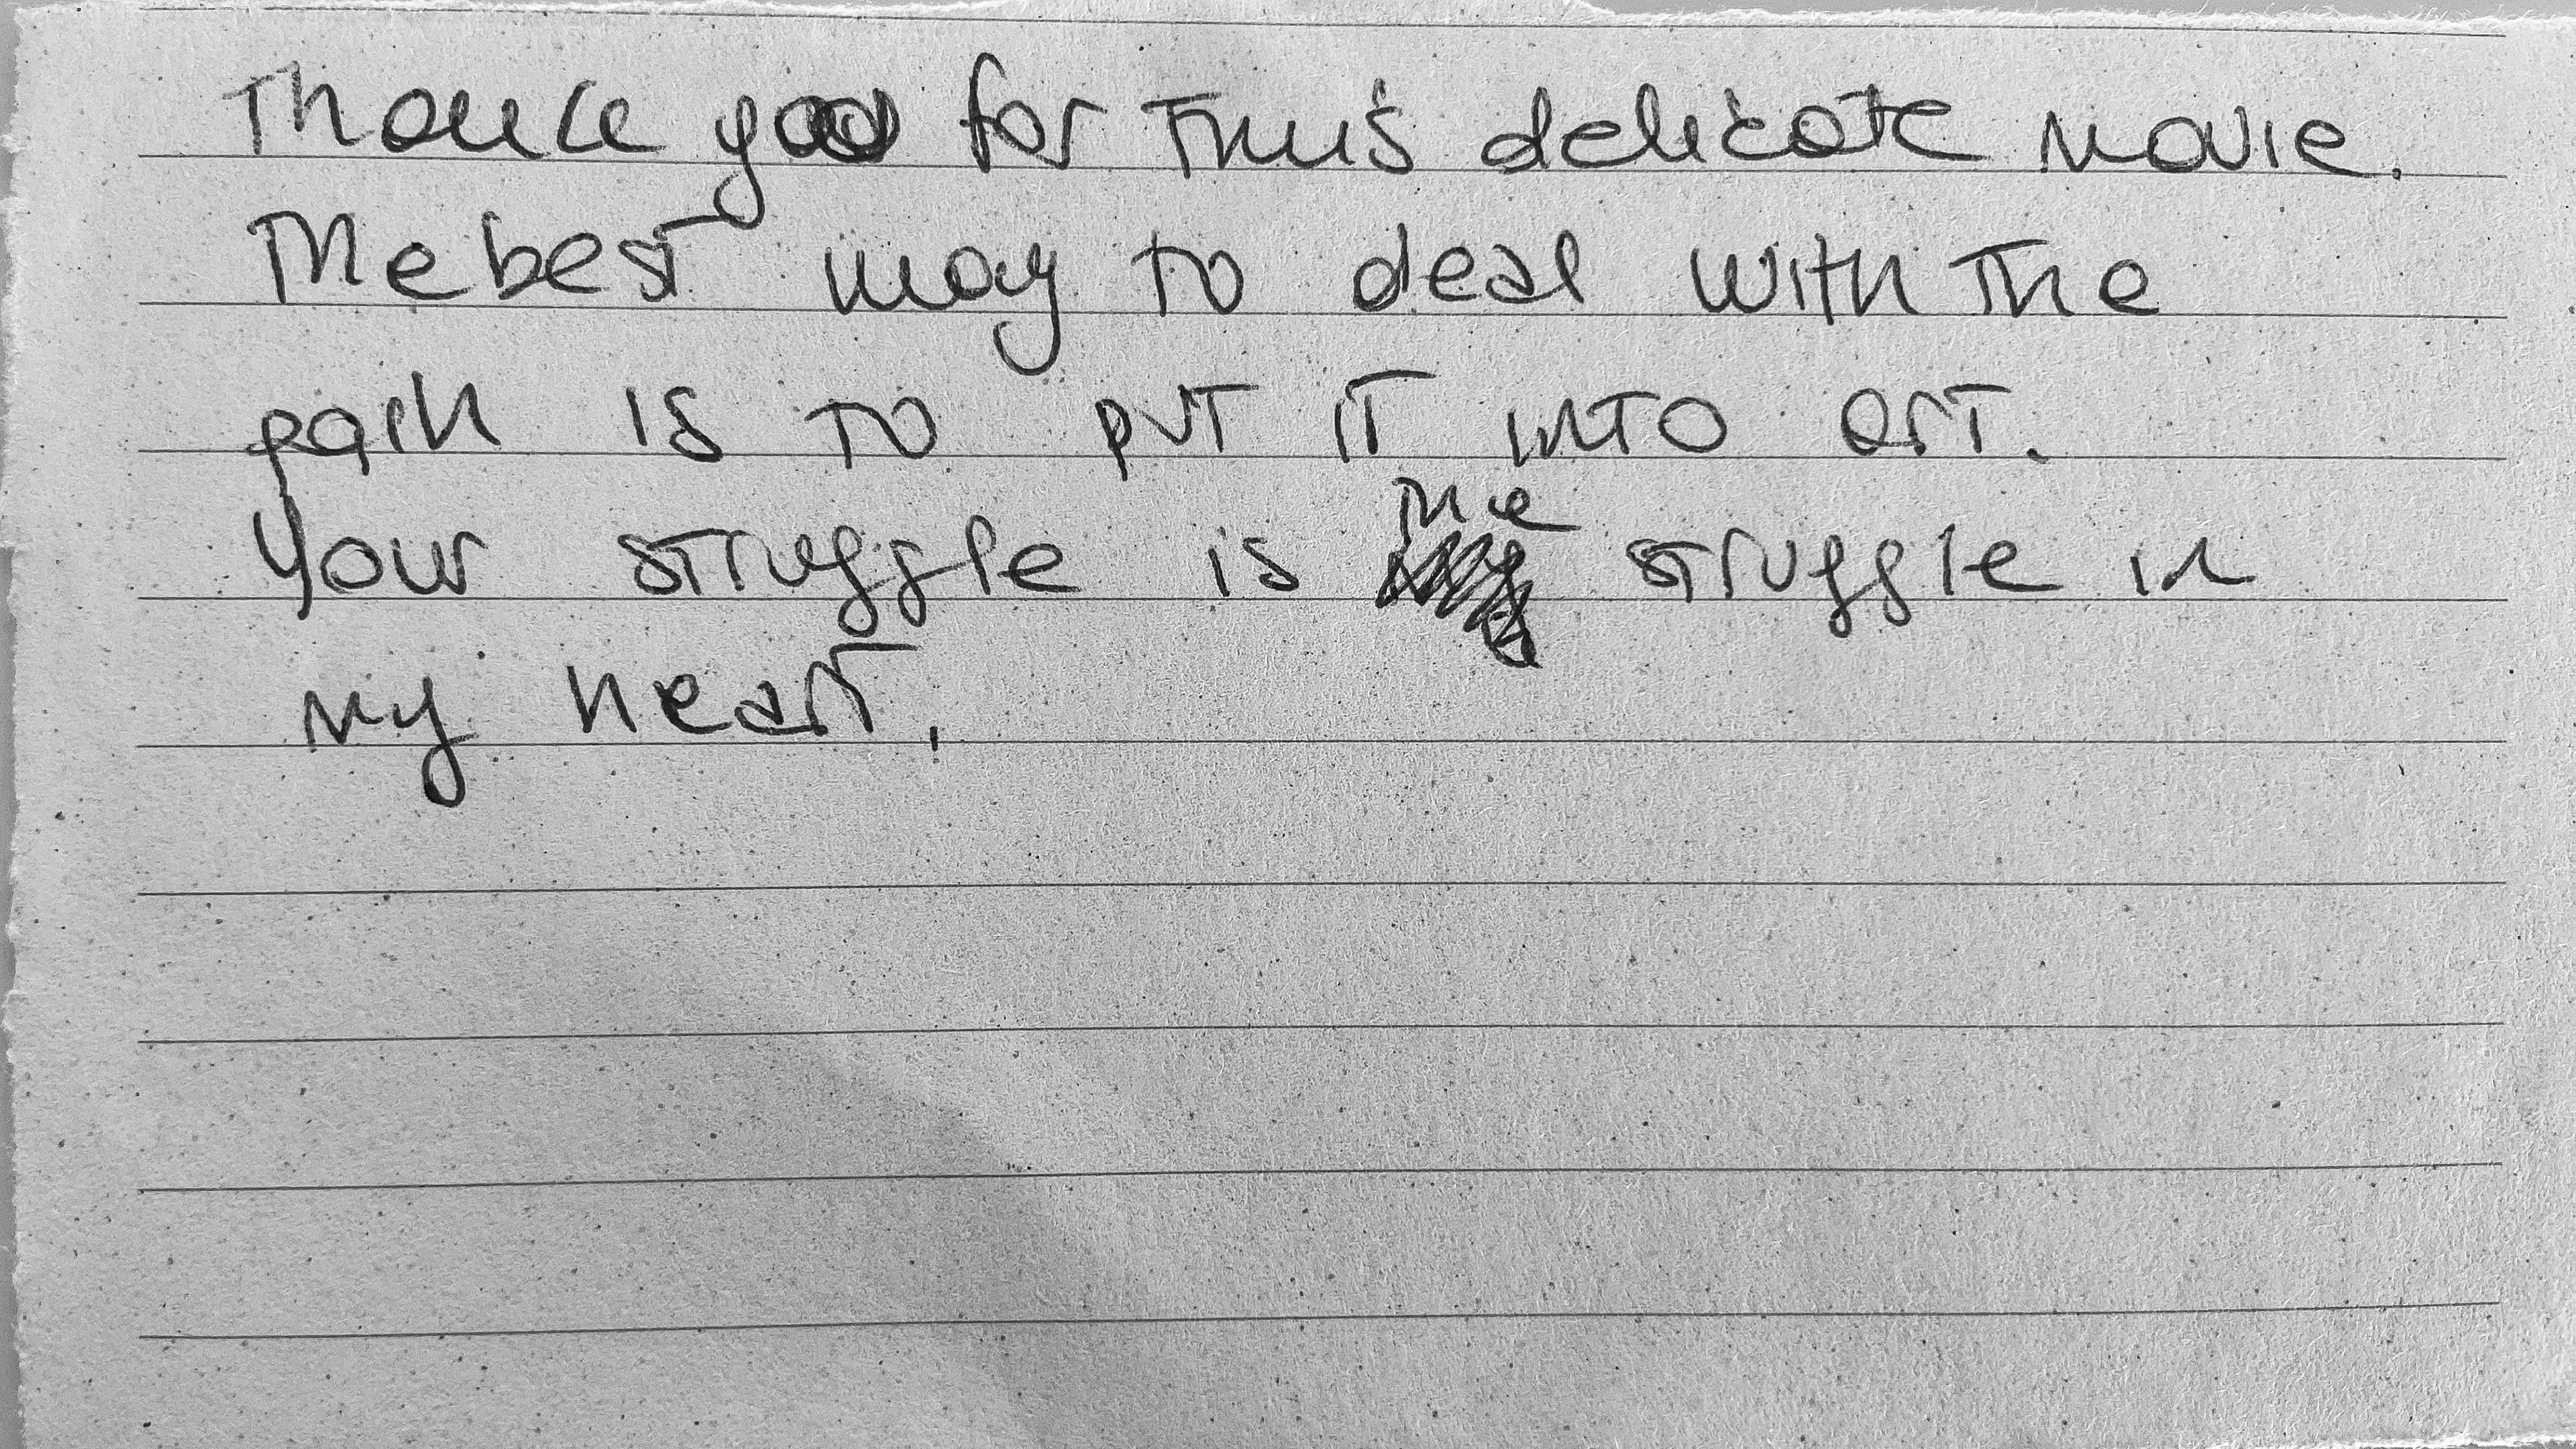 Thank you for this delicate movie.
The best way to deal with the
pain is to put it into art.
Your struggle is the struggle in
my heart.